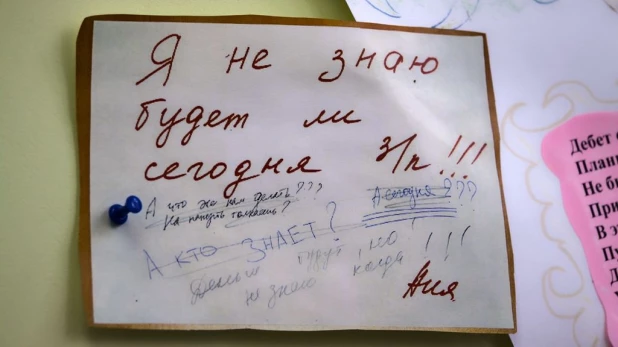 Я не знаю
будет ли
сегодня з/п!!!
А что же нам делать???
На паперть толкаешь?
А сегодня???
А КТО ЗНАЕТ?
Деньги будут, но
не знаю когда!!!
Аня
Дебет
Плани
Не бы
При
В э
Пу
Д